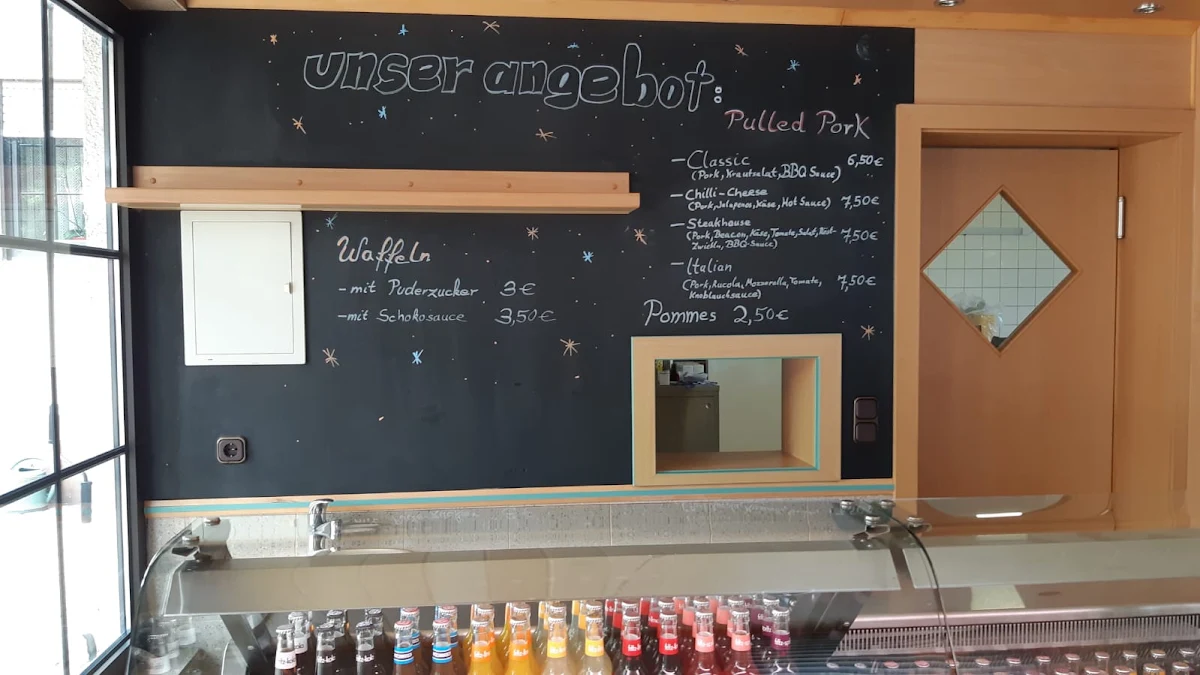 unser angebot:
Pulled Pork
- Classic 6,50€
(Pork, Krautsalat, BBQ Sauce)
- Chilli-Cheese
(Pork, Jalapenos, Käse, Hot Sauce) 7,50€
- Steakhouse
(Pork, Beacon, Käse, Tomate, Salat, Röst- 7,50€
Zwiebln, BBQ-Sauce)
- Italian
(Pork, Rucola, Mozzarella, Tomate, 7,50€
Knoblauchsauce)
Pommes 2,50€
Waffeln
- mit Puderzucker 3€
- mit Schokosauce 3,50€